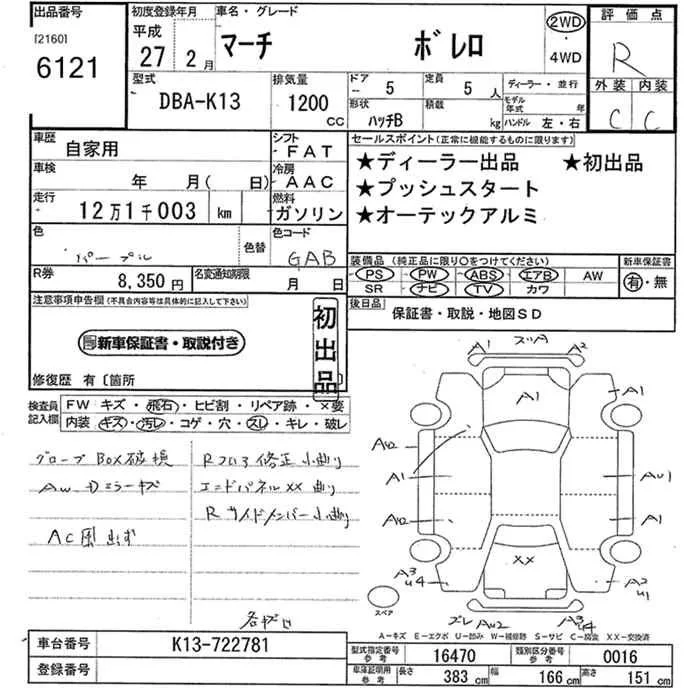 出品番号 初度登録年月 車名・グレード 2WD ・ 4WD 評価点
[2160] 6121 平成 27 2月 マーチ ボレロ R
型式 DBA-K13 排気量 1200 CC ドア - 5 定員 5人 ディーラー・並行 外装 内装
形状 ハッチB 積載 kg モデル年式 年 ハンドル 左・右 C C
車歴 自家用 シフト FAT セールスポイント(正常に機能するものに限ります)
車検 年 月( 日) 冷房 AAC ★ディーラー出品 ★初出品
走行 12万1千003 km 燃料 ガソリン ★プッシュスタート
★オーテックアルミ
色 パープル 色替 色コード GAB
装備品(純正品に限り〇をつけてください) 新車保証書
PS PW ABS エアB AW 有・無
SR ナビ TV カワ
R券 8,350円 名変通知期限 月 日
後日品 保証書・取説・地図SD
注意事項申告欄(不具合内容等は具体的に記入して下さい)
新車保証書・取説付き
初出品
修復歴 有〔箇所
検査員記入欄 FW キズ・飛石・ヒビ割・リペア跡・×要
内装 キズ・汚レ・コゲ・穴・スレ・キレ・破レ
グローブBOX破損 Rフロア修正小曲り
AW ドミラーキズ エンドパネルXX曲り
Rサイドメンバー小曲り
AC風出ず
A1 ズリA A2
A1 A1
AU2
A1 AU1
A1
XX
A3 U4 A2 U1
スペア
ズレ AU2 A3 U4
A-キズ E-エクボ U-凹み W-補修跡 S-サビ C-腐食 XX-交換済
車台番号 K13-722781
登録番号
型式指定番号 参考 16470 類別区分番号 参考 0016
車庫証明用 参考 長さ 383 cm 幅 166 cm 高さ 151 cm